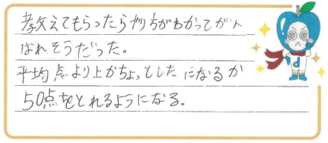 教えてもらったらやり方がわかってがん
ばれそうだった。
平均点より上かちょっとした になるか
50点をとれるようになる.
d